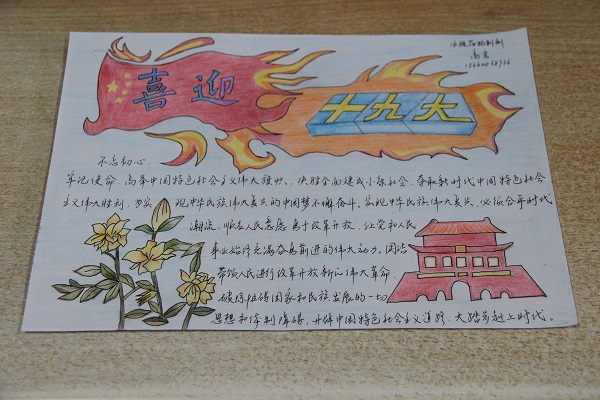 喜迎
十九大
不忘初心、
牢记使命、高举中国特色社会主义伟大旗帜、决胜全面建成小康社会、夺取新时代中国特色社会
主义伟大胜利、为实现中华民族伟大复兴的中国梦不懈奋斗。实现中华民族伟大复兴、必须合乎时代
潮流、顺应人民意愿、勇于改革开放、让党和人民
事业始终充满奋勇前进的伟大动力、团结
带领人民进行改革开放新的伟大革命、
破除阻碍国家和民族发展的一切
思想和体制障碍、开辟中国特色社会主义道路、大踏步赶上时代。